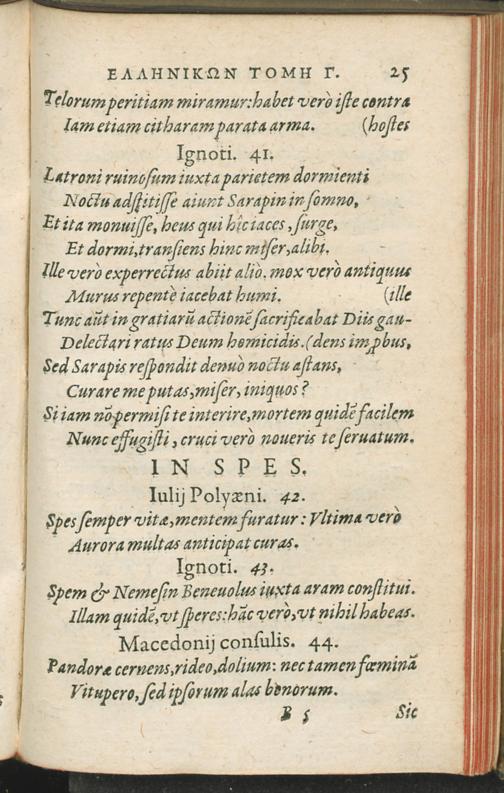 ΕΛΛΗΝΙΚΩΝ ΤΟΜΗ Γ. 25
Telorum peritiam miramur: habet verò iſte contra
Iam etiam citharam parata arma. (hoſtes
Ignoti. 41.
Latroni ruinoſum iuxta parietem dormienti
Noctu adſtitiſſe aiunt Sarapin in ſomno,
Et ita monuiſſe, heus qui hîc iaces, ſurge,
Et dormi, tranſiens hinc miſer, alibi.
Ille verò experrectus abiit aliò. mox verò antiquus
Murus repentè iacebat humi. (ille
Tunc aūt in gratiarū actionē ſacrificabat Diis gau-
Delectari ratus Deum homicidis. (dens imꝓbus,
Sed Sarapis reſpondit denuò noctu aſtans,
Curare me putas, miſer, iniquos?
Si iam nō permiſi te interire, mortem quidē facilem
Nunc effugiſti, cruci verò noueris te ſeruatum.
IN SPES.
Iulij Polyæni. 42.
Spes ſemper vitæ, mentem furatur: Vltima verò
Aurora multas anticipat curas.
Ignoti. 43.
Spem & Nemeſin Beneuolus iuxta aram conſtitui.
Illam quidē, vt ſperes: hāc verò, vt nihil habeas.
Macedonij conſulis. 44.
Pandoræ cernens, rideo, dolium: nec tamen fœminā
Vitupero, ſed ipſorum alas bonorum.
B 5 Sic